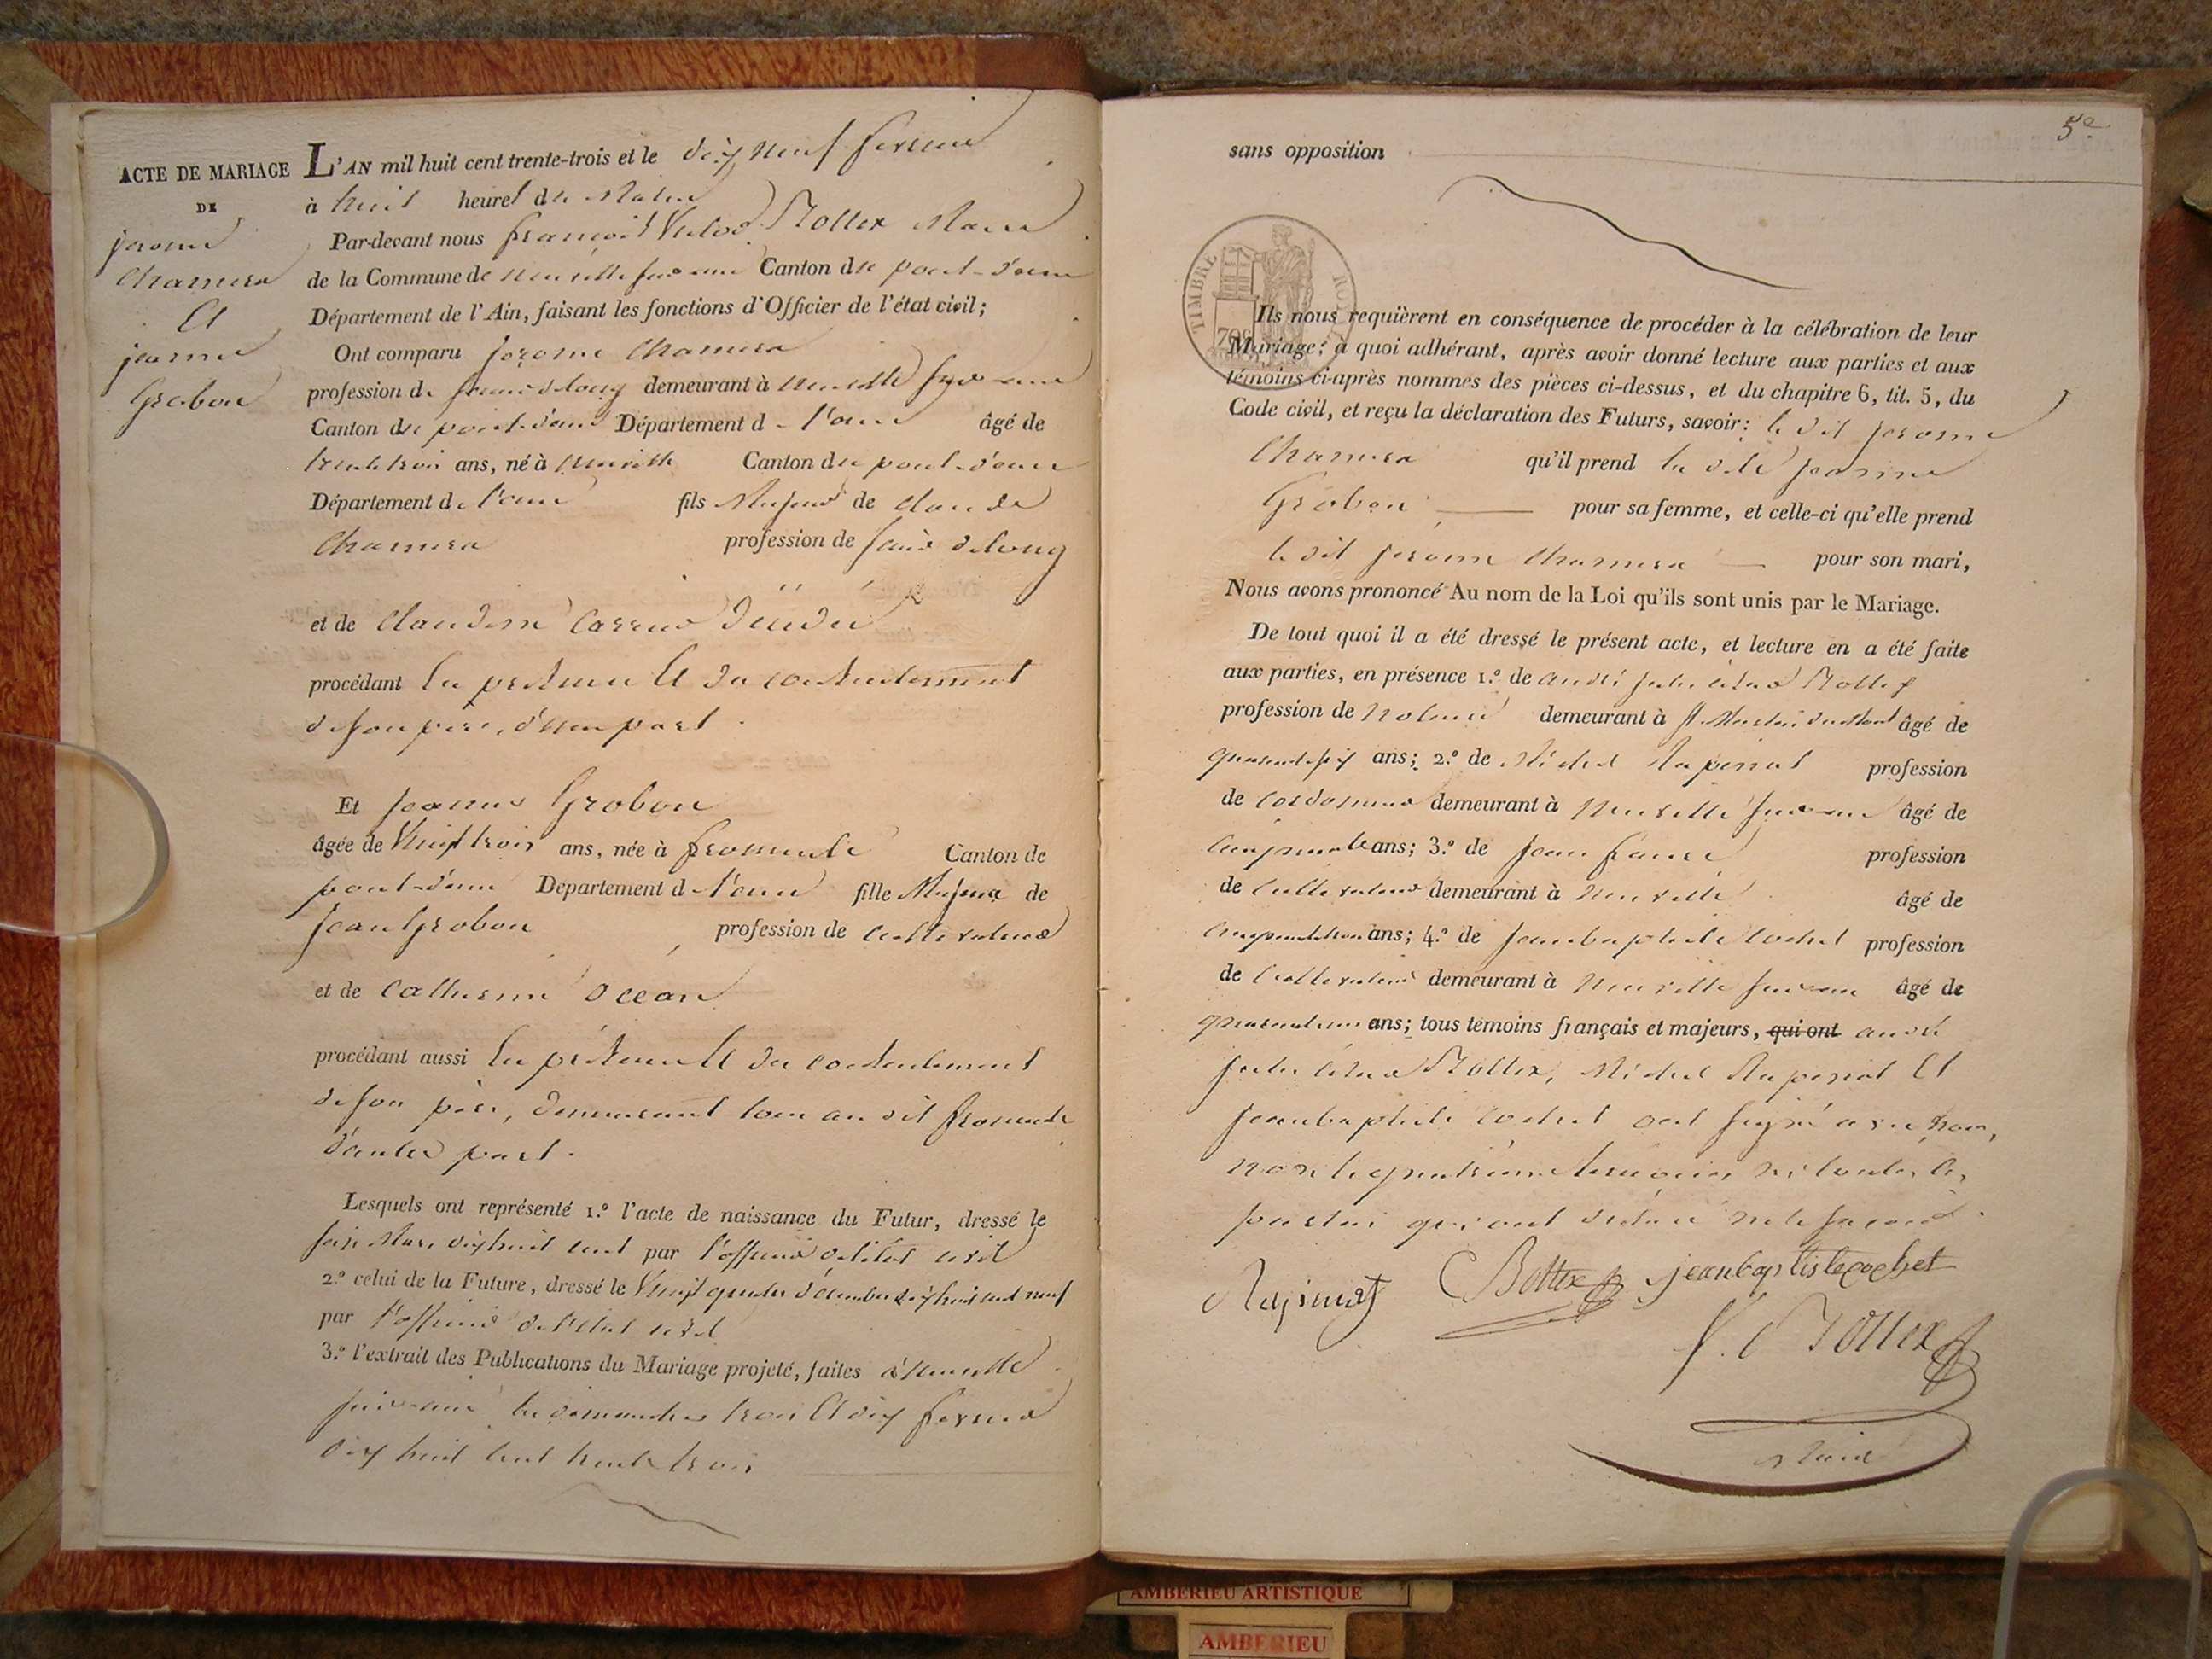 ACTE DE MARIAGE
DE
jerome
Chamera
Et
jeanne
Grobon
L'AN mil huit cent trente-trois et le dix neuf fevrier
à huit heures du Matin
Par-devant nous françois Bottex Maire
de la Commune de neuville sur ain Canton de pont-d'ain
Département de l'Ain, faisant les fonctions d'Officier de l'état civil;
Ont comparu Jerome Chamera
profession de demeurant à neuville sur ain
Canton de pont-d'ain Département d l'ain âgé de
trente trois ans, né à neuville Canton de pont-d'ain
Département de l'ain fils Majeur de Claude
Chamera profession de
et de Claudine décédée
procédant en présence et du consentement
de son pere, d'une part.
Et Jeanne Grobon
âgée de Vingt trois ans, née à fromente Canton de
pont-d'ain Departement d l'ain fille Majeure de
Jean Grobon profession de cultivateur
et de Catherine océan
procédant aussi en présence et du consentement
de son père, demeurant tous au dit fromente
d'autre part.
Lesquels ont représenté 1.º l'acte de naissance du Futur, dressé le
seize Mars dix huit cent par l'officier de l'état civil
2.º celui de la Future, dressé le Vingt quatre décembre dix huit cent neuf
par l'officier de l'état civil
3.º l'extrait des Publications du Mariage projeté, faites à neuville
sur ain les dimanches trois et dix fevrier
dix huit cent trente trois
5e
sans opposition
TIMBRE ROYAL
70c
Ils nous requièrent en conséquence de procéder à la célébration de leur
Mariage: à quoi adhérant, après avoir donné lecture aux parties et aux
témoins ci-après nommés des pièces ci-dessus, et du chapitre 6, tit. 5, du
Code civil, et reçu la déclaration des Futurs, savoir: le dit jerome
Chamera qu'il prend la dite jeanne
Grobon pour sa femme, et celle-ci qu'elle prend
le dit jerome Chamera pour son mari,
Nous avons prononcé Au nom de la Loi qu'ils sont unis par le Mariage.
De tout quoi il a été dressé le présent acte, et lecture en a été faite
aux parties, en présence 1.º de andré jules cesar Bottex
profession de notaire demeurant à St Martin du Mont âgé de
quarante six ans; 2.º de Michel Raperiat profession
de cordonnier demeurant à neuville sur ain âgé de
cinquante ans; 3.º de Jean profession
de cultivateur demeurant à neuville âgé de
cinquante trois ans; 4.º de Jean baptiste cochet profession
de cultivateur demeurant à neuville sur ain âgé de
quarante ans; tous temoins français et majeurs, qui ont andré
jules cesar Bottex, Michel Raperiat Et
jean baptiste cochet ont signé avec nous,
non le quatrième temoin ni toutes les
parties qui ont déclaré ne le savoir.
Bottex jeanbaptiste cochet
Bottex
Maire
AMBERIEU ARTISTIQUE
AMBERIEU